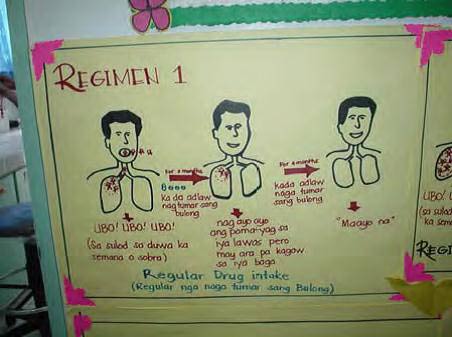 REGIMEN 1
For 2 months
kada adlaw
nag tumar sang
bulong
For 4 months
kada adlaw
naga tumar
sang bulong
UBO! UBO! UBO!
(Sa sulod sa duwa ka
semana o sobra)
nag ayo ayo
ang pama-yag sa
iya lawas pero
may ara pa kagaw
sa iya baga
"Maayo na"
Regular Drug intake
(Regular nga naga tumar sang Bulong)
UBO! U
(sa sulod
ka sem
REGI